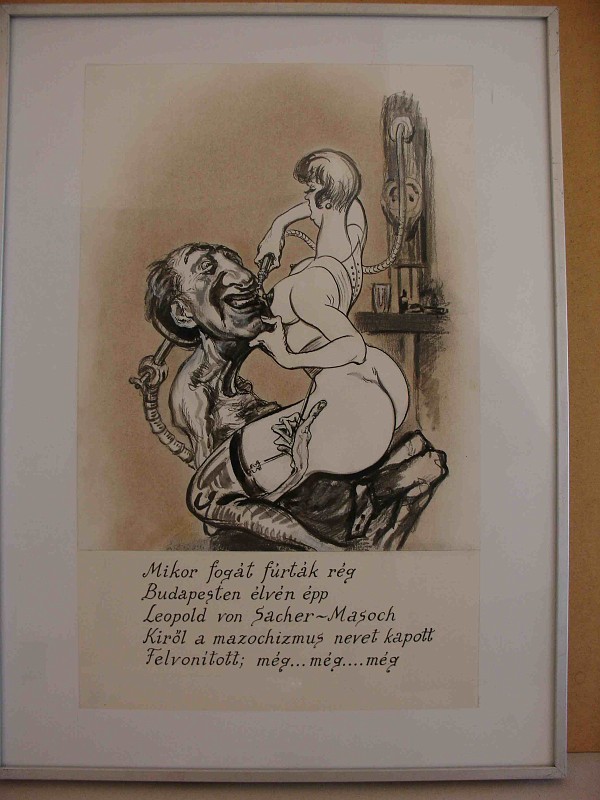 Mikor fogát fúrták rég
Budapesten élvén épp
Leopold von Sacher~Masoch
Kiről a mazochizmus nevet kapott
Felvonított; még...még....még